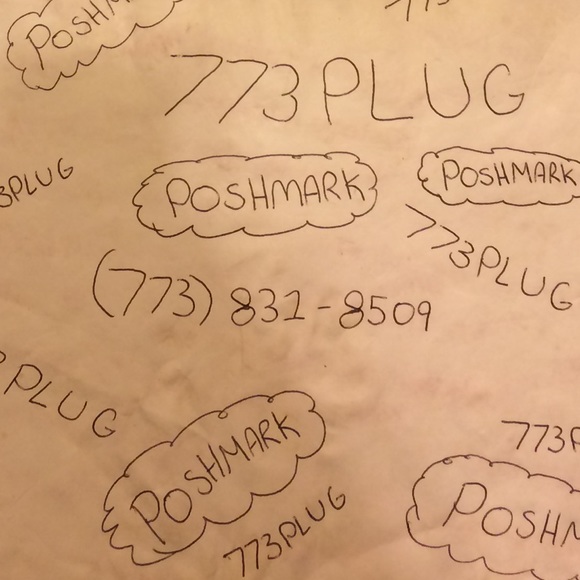 POSHM
773
773PLUG
3PLUG
POSHMARK
POSHMARK
773PLUG
(773) 831-8509
PLUG
POSHMARK
773P
POSHM
773PLUG